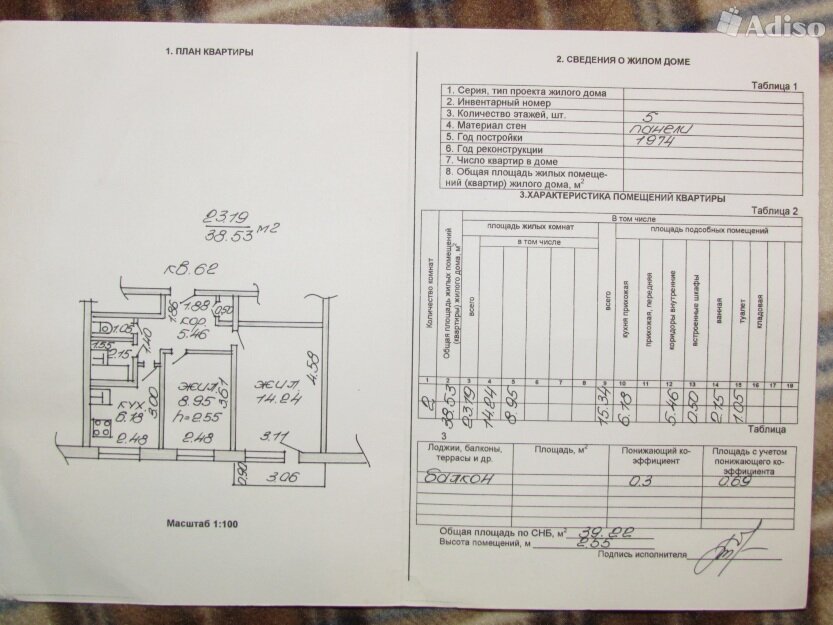 Adiso
1. ПЛАН КВАРТИРЫ
23.19
38.53 м2
кв. 62
1.86
1.88
0.50
кор
5.46
1.05
1.40
1.55
2.15
кух
6.18
3.00
2.48
жил
8.95
h=2.55
3.61
2.48
жил
14.24
4.58
3.11
0.90
3.06
Масштаб 1:100
2. СВЕДЕНИЯ О ЖИЛОМ ДОМЕ
Таблица 1
1. Серия, тип проекта жилого дома
2. Инвентарный номер
3. Количество этажей, шт. 5
4. Материал стен панели
5. Год постройки 1974
6. Год реконструкции
7. Число квартир в доме
8. Общая площадь жилых помеще-
ний (квартир) жилого дома, м²
3.ХАРАКТЕРИСТИКА ПОМЕЩЕНИЙ КВАРТИРЫ
Таблица 2
Количество комнат
Общая площадь жилых помещений (квартиры) жилого дома, м²
В том числе
площадь жилых комнат
площадь подсобных помещений
всего
в том числе
всего
кухня прихожая
прихожая, передняя
коридоры внутренние
встроенные шкафы
ванная
туалет
кладовая
1 2 3 4 5 6 7 8 9 10 11 12 13 14 15 16 17 18
2 38.53 23.19 14.24 8.95 15.34 6.18 5.46 0.50 2.15 1.05
Таблица
3
Лоджии, балконы,
террасы и др.
Площадь, м²
Понижающий ко-
эффициент
Площадь с учетом
понижающего ко-
эффициента
балкон 0.3 0.69
Общая площадь по СНБ, м² 39.22
Высота помещений, м 2.55
Подпись исполнителя